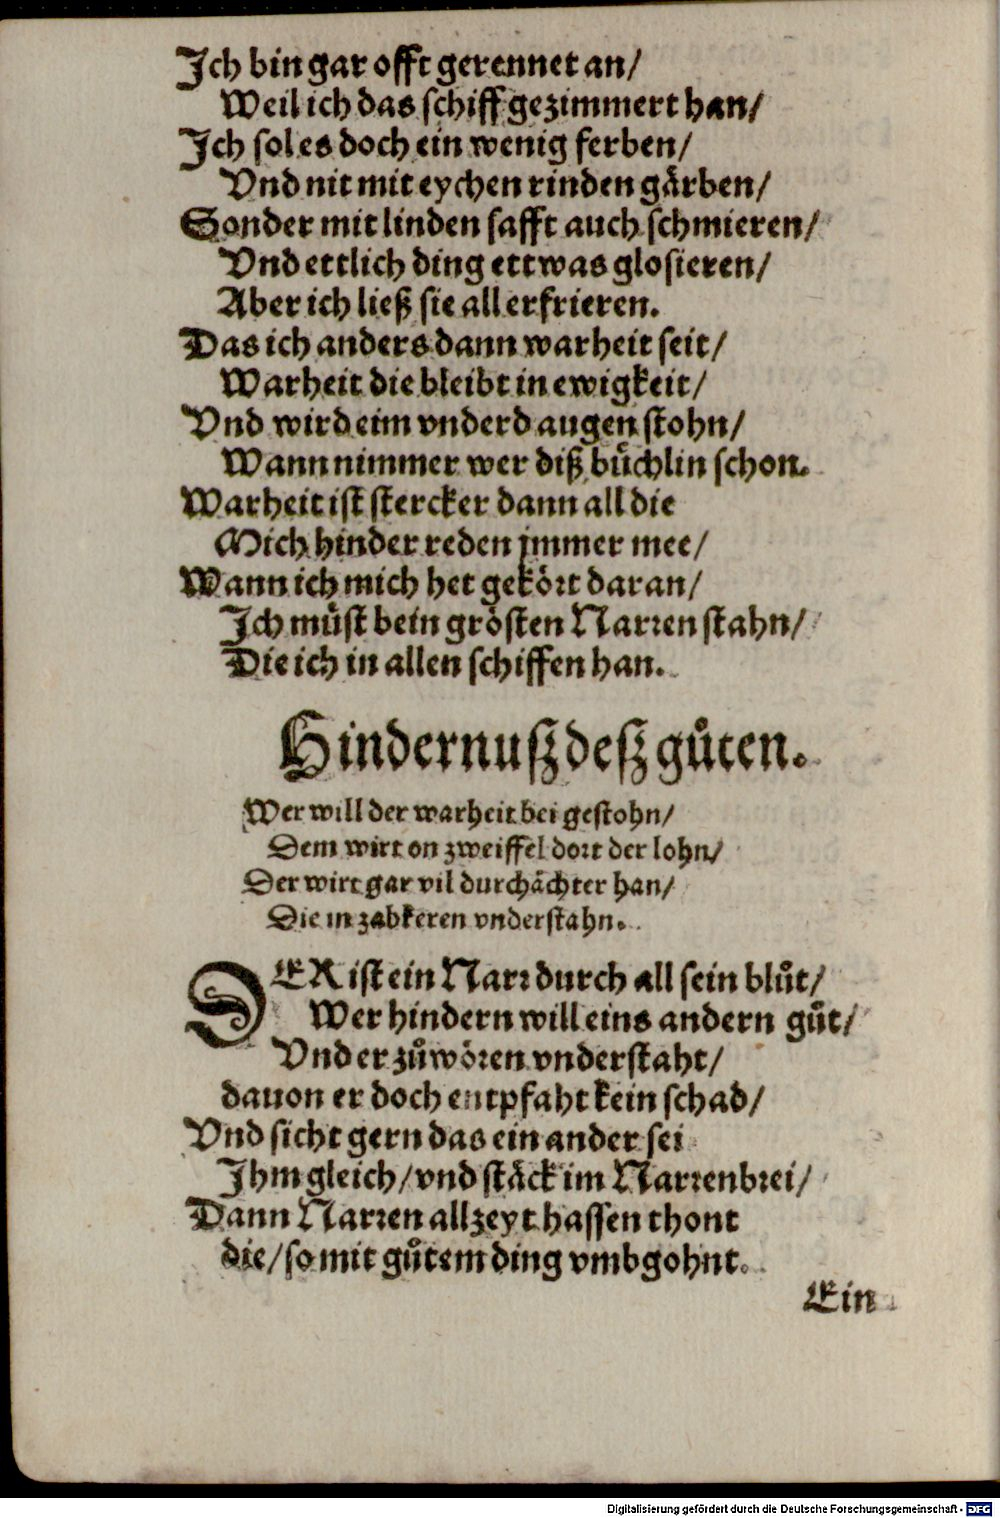 Ich bin gar offt gerennet an/
Weil ich das schiff gezimmert han/
Ich sol es doch ein wenig ferben/
Vnd nit mit eychen rinden gaͤrben/
Sonder mit linden safft auch schmieren/
Vnd ettlich ding ettwas glosieren/
Aber ich ließ sie all erfrieren.
Das ich anders dann warheit seit/
Warheit die bleibt in ewigkeit/
Vnd wird eim vnderd augen stohn/
Wann nimmer wer diß buͤchlin schon.
Warheit ist stercker dann all die
Mich hinder reden jmmer mee/
Wann ich mich het gekoͤrt daran/
Ich muͤst bein groͤsten Narren stahn/
Die ich in allen schiffen han.
Hindernuß deß guͦten.
Wer will der warheit bei gestohn/
Dem wirt on zweiffel dort der lohn/
Der wirt gar vil durchaͤchter han/
Die in zabkeren vnderstahn.
DER ist ein Narr durch all sein bluͦt/
Wer hindern will eins andern guͦt/
Vnd er zuͦ woͤren vnderstaht/
dauon er doch entpfaht kein schad/
Vnd sicht gern das ein ander sei
Ihm gleich/ vnd staͤck im Narrenbrei/
Dann Narren allzeyt hassen thont
die/ so mit guͦtem ding vmbgohnt.
Ein
Digitalisierung gefördert durch die Deutsche Forschungsgemeinschaft - DFG